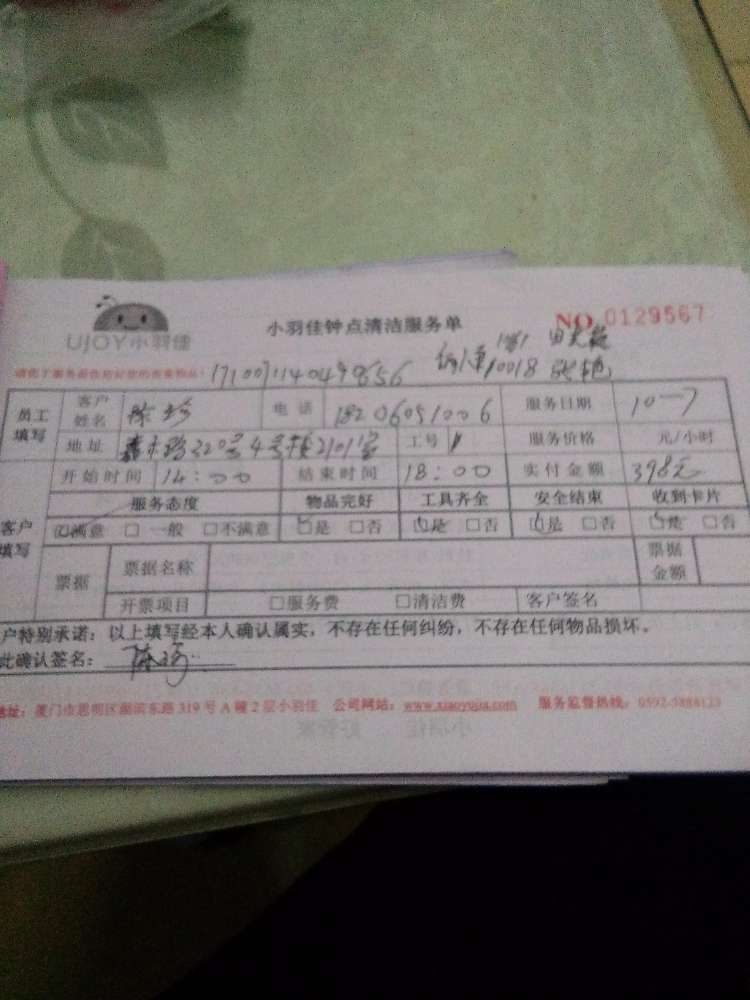 UJOY小羽佳
小羽佳钟点清洁服务单
NO 0129567
171007114049856
10018
员工填写 客户姓名 陈珍 电话 18206051006 服务日期 10-7
地址 路320号4号楼2101室 工号 服务价格 元/小时
开始时间 14:00 结束时间 18:00 实付金额 398元
客户填写 服务态度 物品完好 工具齐全 安全结束 收到卡片
☑满意 □一般 □不满意 ☑是 □否 ☑是 □否 ☑是 □否 ☑是 □否
票据 票据名称 票据金额
开票项目 □服务费 □清洁费 客户签名
户特别承诺:以上填写经本人确认属实,不存在任何纠纷,不存在任何物品损坏。
此确认签名: 陈珍
地址:厦门市思明区湖滨东路319号A幢2层小羽佳 公司网站:www.xiaoyujia.com 服务监督热线:0592-5888123